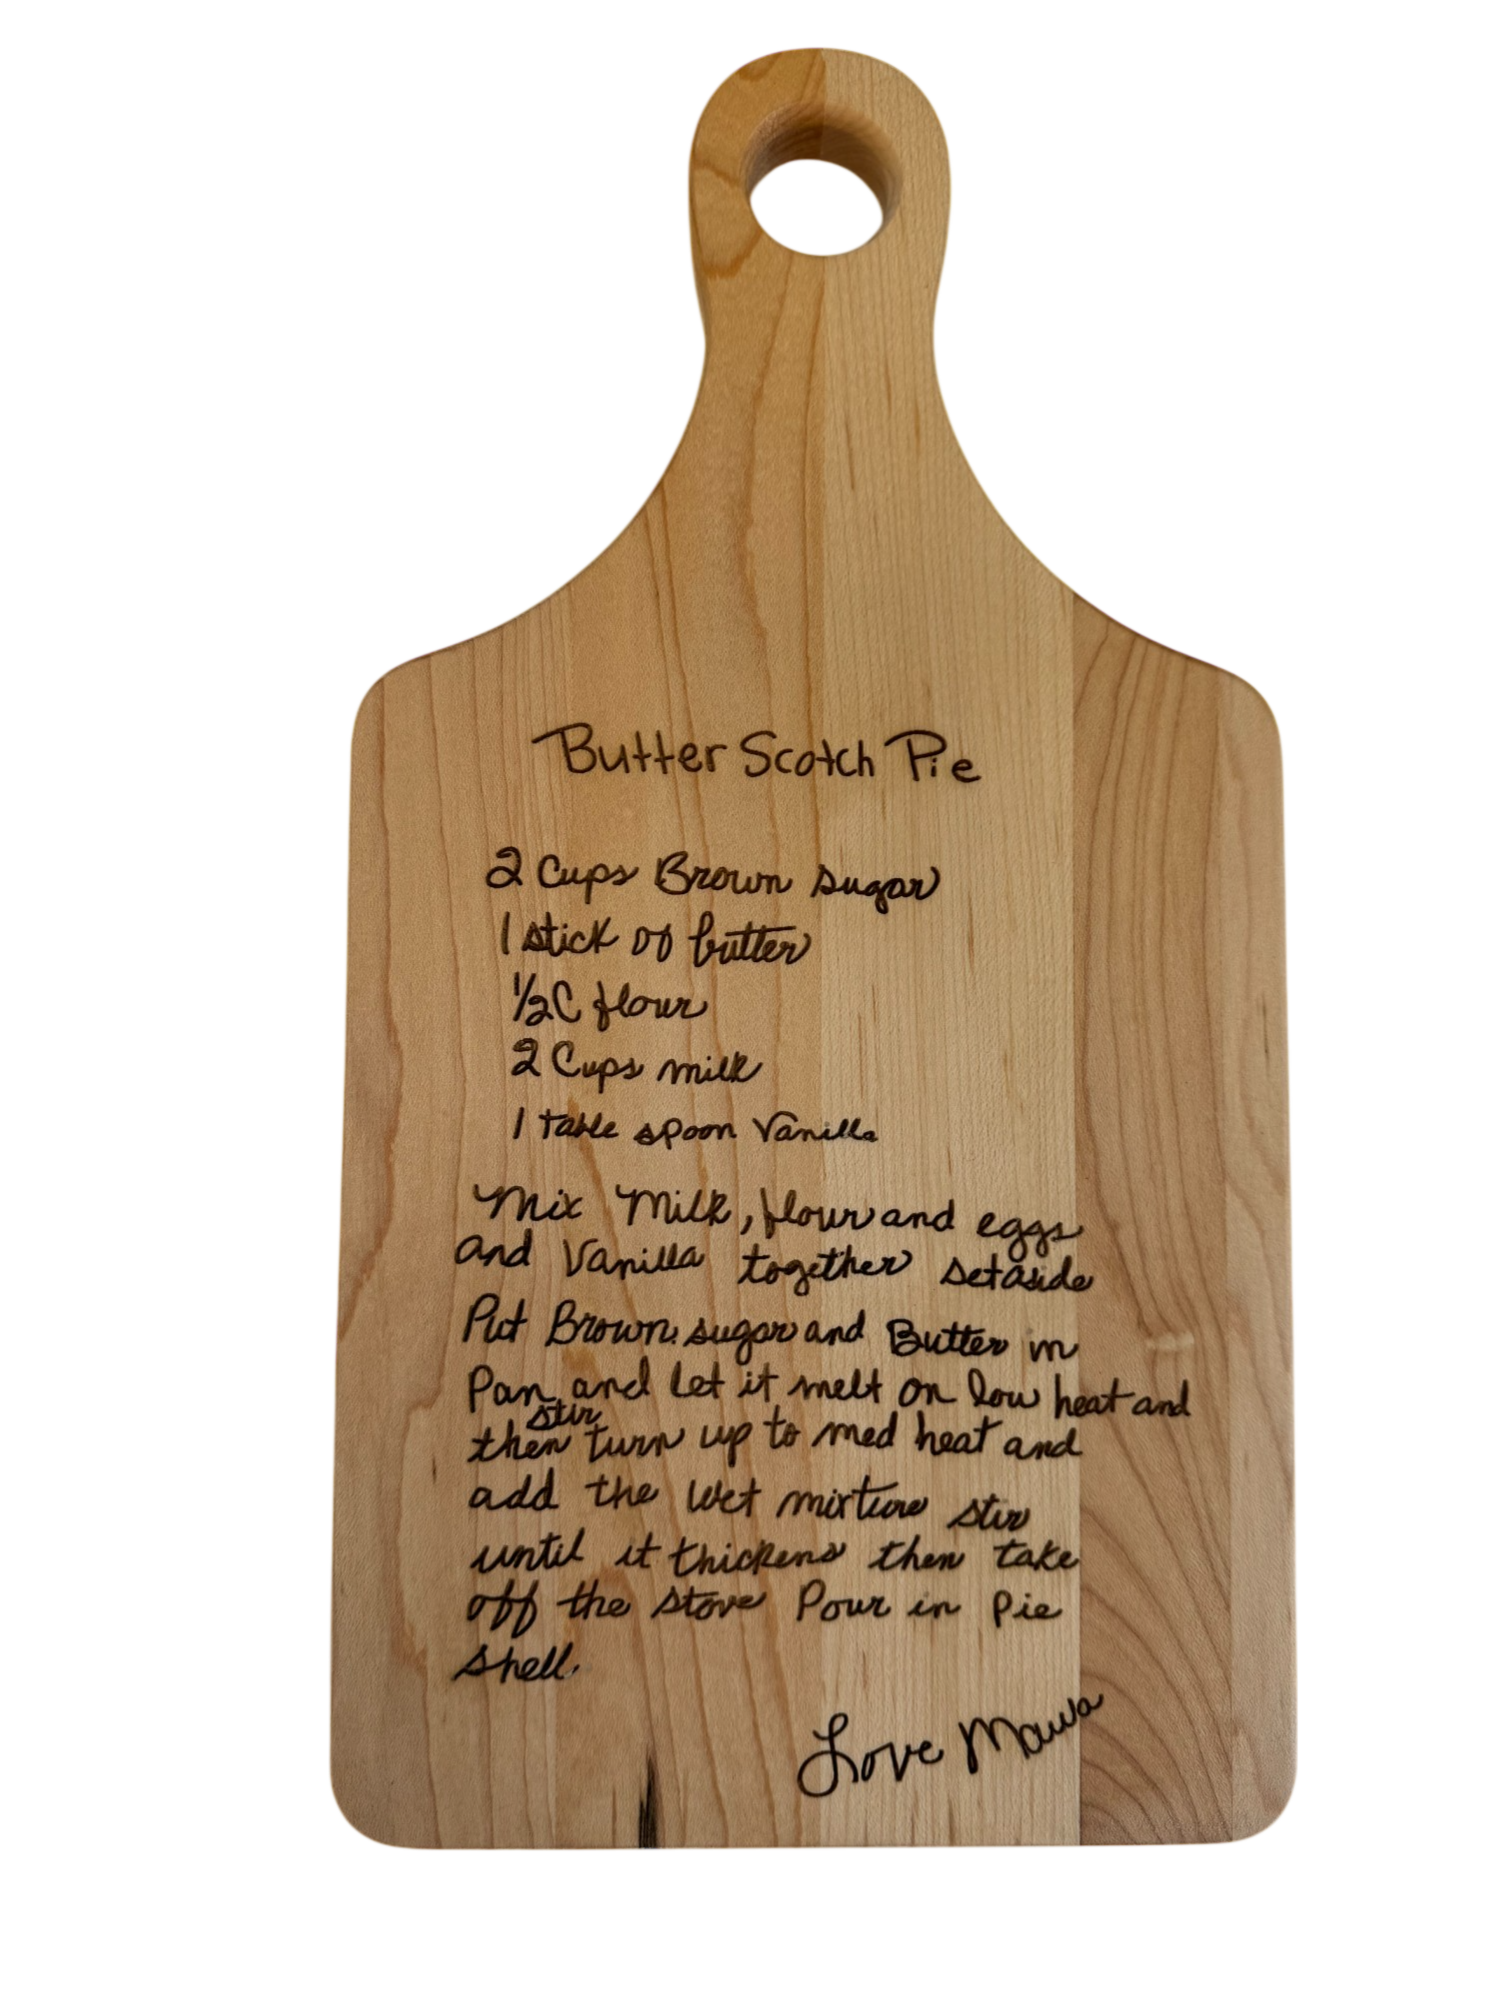 Butter Scotch Pie
2 Cups Brown sugar
1 stick of butter
1/2 C flour
2 Cups milk
1 table spoon Vanilla
Mix Milk, flour and eggs
and Vanilla together set aside
Put Brown sugar and Butter in
Pan and let it melt on low heat and
stir
then turn up to med heat and
add the wet mixture stir
until it thickens then take
off the stove Pour in Pie
shell.
Love Mawa